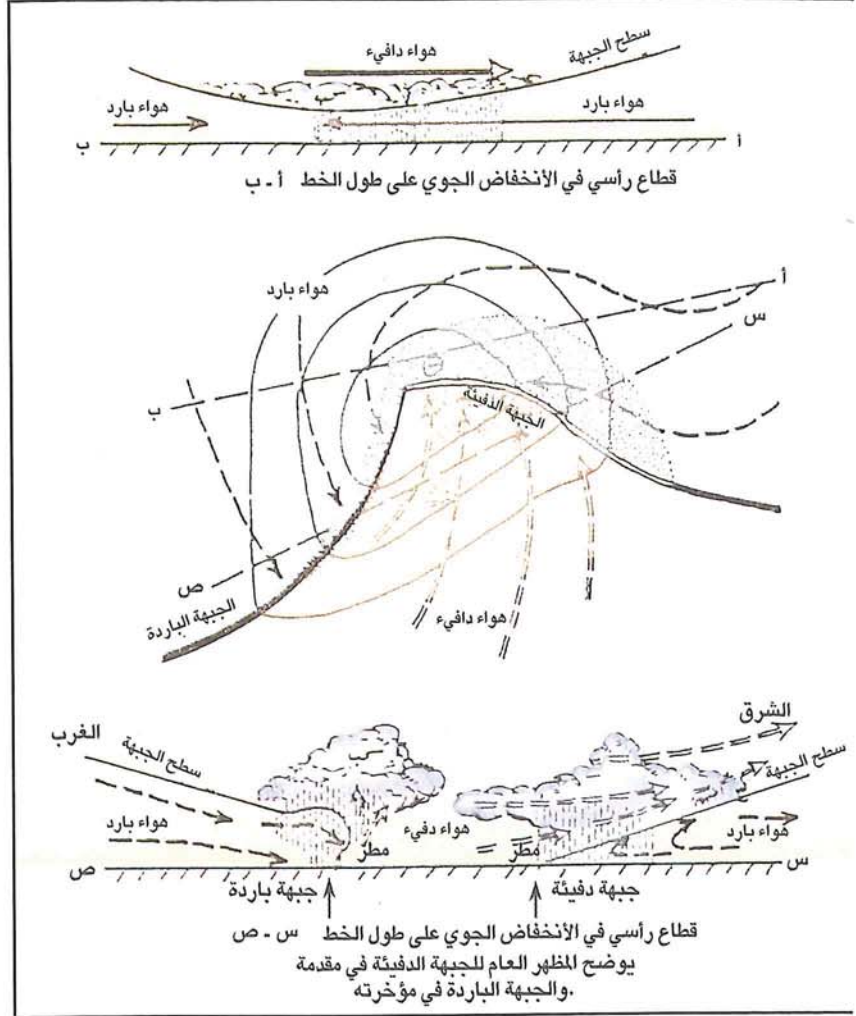 هواء دافيء
سطح الجبهة
هواء بارد
هواء بارد
أ
ب
قطاع رأسي في الأنخفاض الجوي على طول الخط أ - ب
هواء بارد
أ
س
ب
الجبهة الدفيئة
ص
الجبهة الباردة
هواء دافيء
الشرق
الغرب
سطح الجبهة
سطح الجبهة
هواء بارد
هواء دفيء
هواء بارد
مطر
مطر
س
ص
جبهة دفيئة
جبهة باردة
قطاع رأسي في الأنخفاض الجوي على طول الخط س - ص
يوضح المظهر العام للجبهة الدفيئة في مقدمة
والجبهة الباردة في مؤخرته.